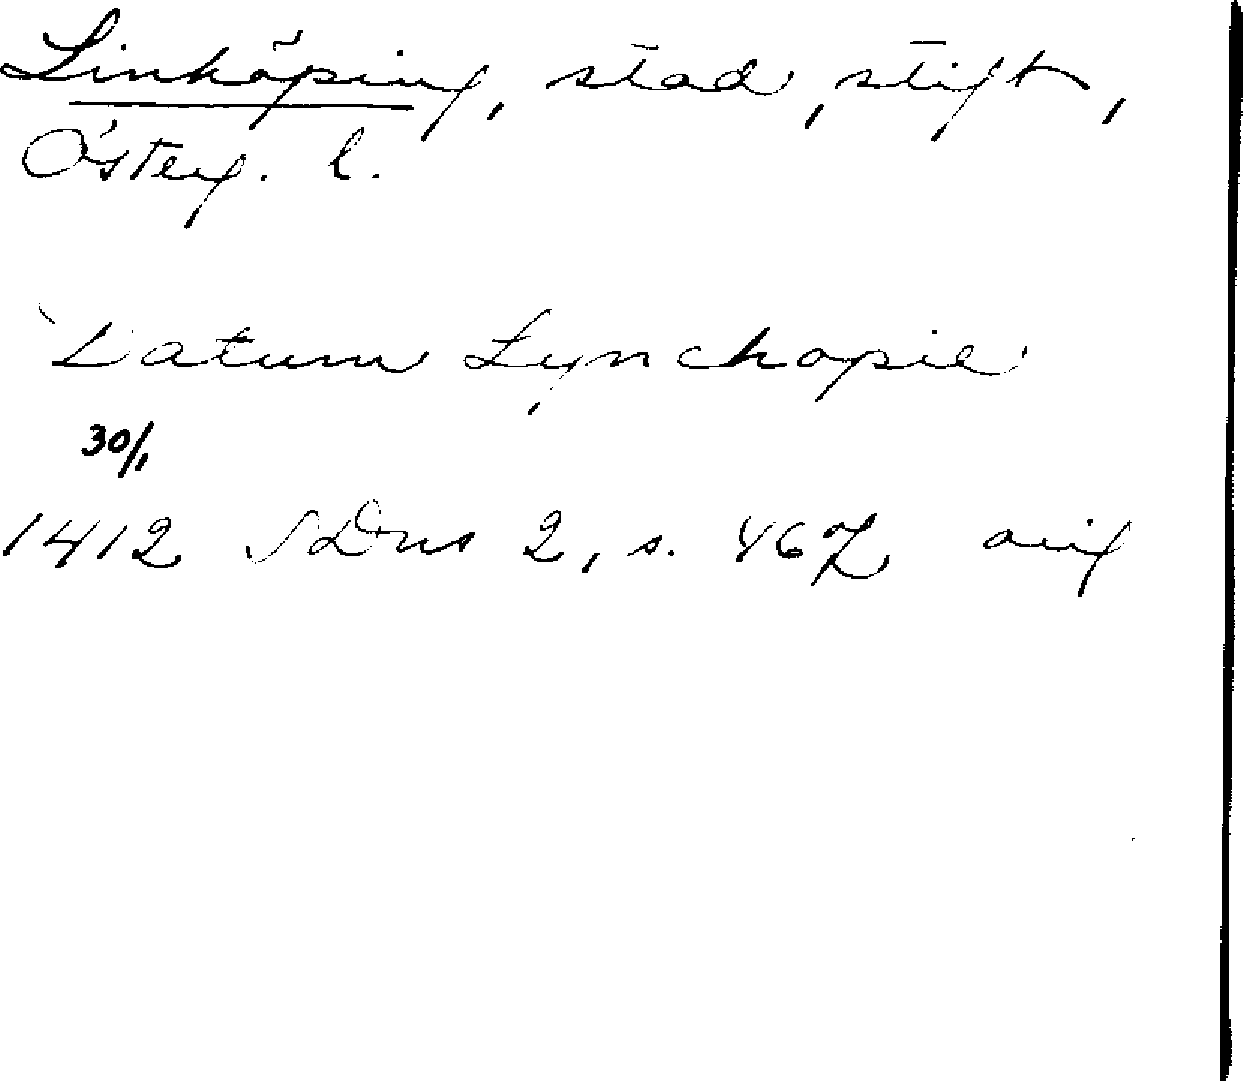 Linköping, stad, stift,
Österg. l.
Datum Lynchopie
30/1
1412 SDns 2, s. 467 orig